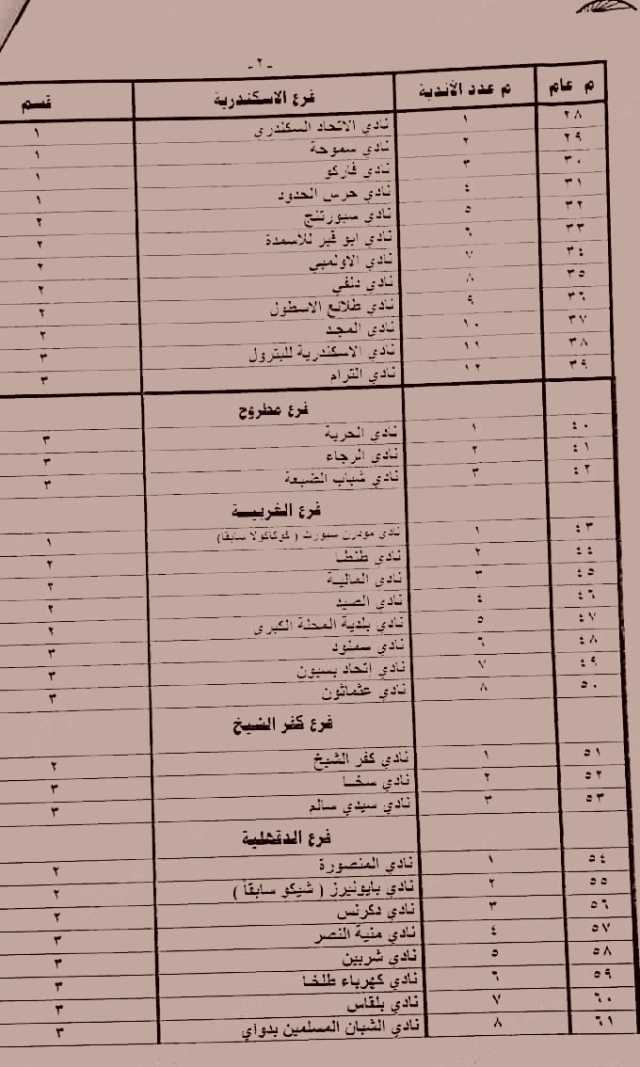 - ٢ -
م عام م عدد الأندية فرع الاسكندرية قسم
٢٨ ١ نادي الاتحاد السكندري ١
٢٩ ٢ نادي سموحة ١
٣٠ ٣ نادي فاركو ١
٣١ ٤ نادي حرس الحدود ١
٣٢ ٥ نادي سبورتنج ٢
٣٣ ٦ نادي ابو قير للاسمدة ٢
٣٤ ٧ نادي الاولمبي ٢
٣٥ ٨ نادي دلفي ٢
٣٦ ٩ نادي طلائع الاسطول ٢
٣٧ ١٠ نادي المجد ٢
٣٨ ١١ نادي الاسكندرية للبترول ٣
٣٩ ١٢ نادي الترام ٣
فرع مطروح
٤٠ ١ نادي الحرية ٣
٤١ ٢ نادي الرجاء ٣
٤٢ ٣ نادي شباب الضبعة ٣
فرع الغربيـــة
٤٣ ١ نادي مودرن سبورت ( كوكاكولا سابقا) ١
٤٤ ٢ نادي طنطا ٢
٤٥ ٣ نادي المالية ٢
٤٦ ٤ نادي الصيد ٢
٤٧ ٥ نادي بلدية المحلة الكبرى ٢
٤٨ ٦ نادي سمنود ٣
٤٩ ٧ نادي اتحاد بسيون ٣
٥٠ ٨ نادي عثماثون ٣
فرع كفر الشيخ
٥١ ١ نادي كفر الشيخ ٢
٥٢ ٢ نادي سخــا ٣
٥٣ ٣ نادي سيدي سالم ٣
فرع الدقهلية
٥٤ ١ نادي المنصورة ٢
٥٥ ٢ نادي بايونيرز ( شيكو سابقاً ) ٢
٥٦ ٣ نادي دكرنس ٢
٥٧ ٤ نادي منية النصر ٣
٥٨ ٥ نادي شربين ٣
٥٩ ٦ نادي كهرباء طلخا ٣
٦٠ ٧ نادي بلقاس ٣
٦١ ٨ نادي الشبان المسلمين بدواي ٣